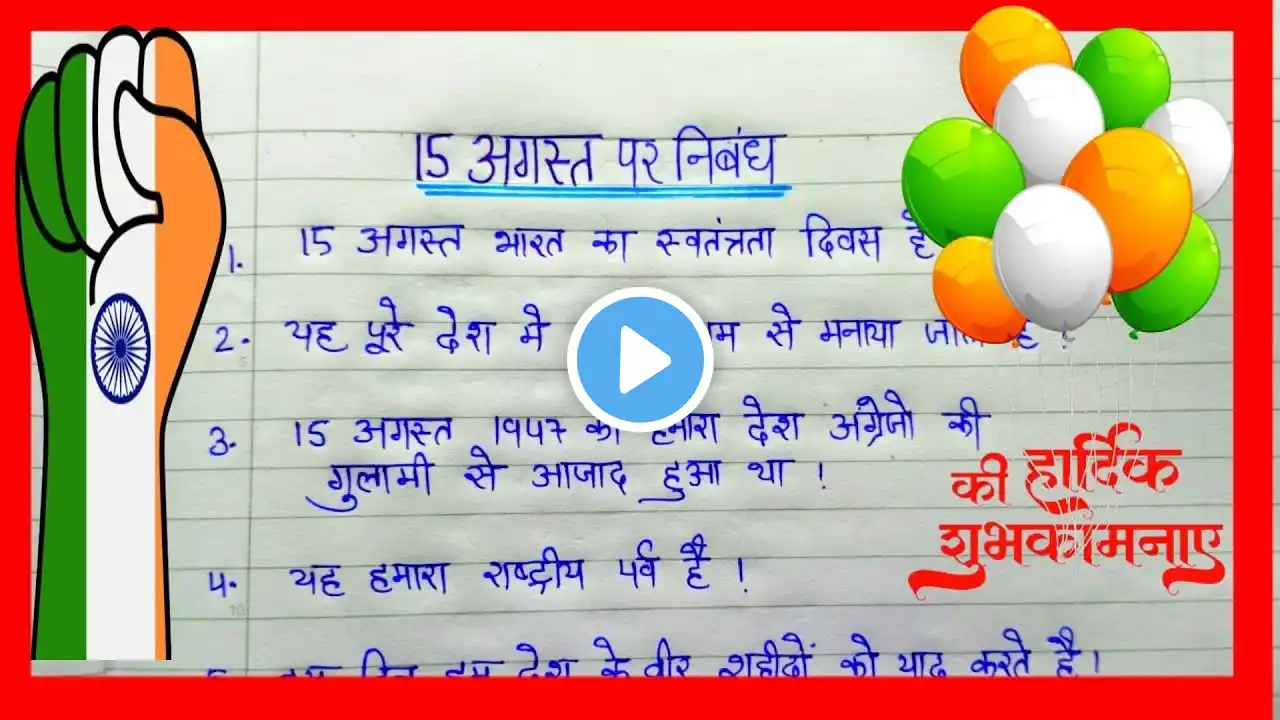 15 अगस्त पर निबंध
1. 15 अगस्त भारत का स्वतंत्रता दिवस है
2. यह पूरे देश मे से मनाया है !
3. 15 अगस्त 1947 को हमारा देश अंग्रेजो की
गुलामी से आजाद हुआ था !
की हार्दिक
शुभकामनाए
4. यह हमारा राष्ट्रीय पर्व है !
हम देश के वीर शहीदों को याद करते है।